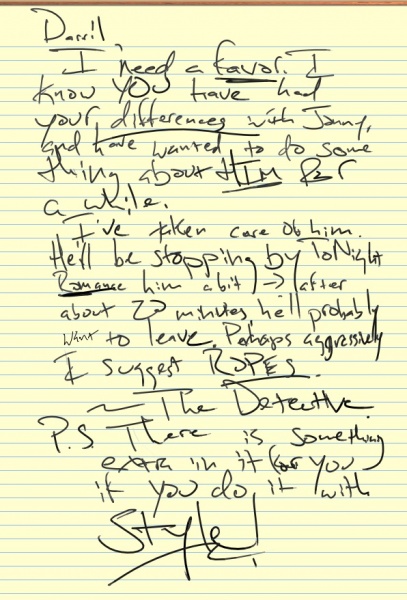 Darril,
I need a favor. I
know YOU have had
your differences with Jonny,
and have wanted to do some
thing about HIM for
a while.
I've taken care of him.
He'll be stopping by ToNight
Romance him a bit → (after
about 20 minutes he'll probably
want to leave. Perhaps aggressively
I suggest ROPES.
~ The Detective.
P.S. There is something
extra in it for you
if you do it with
Style!